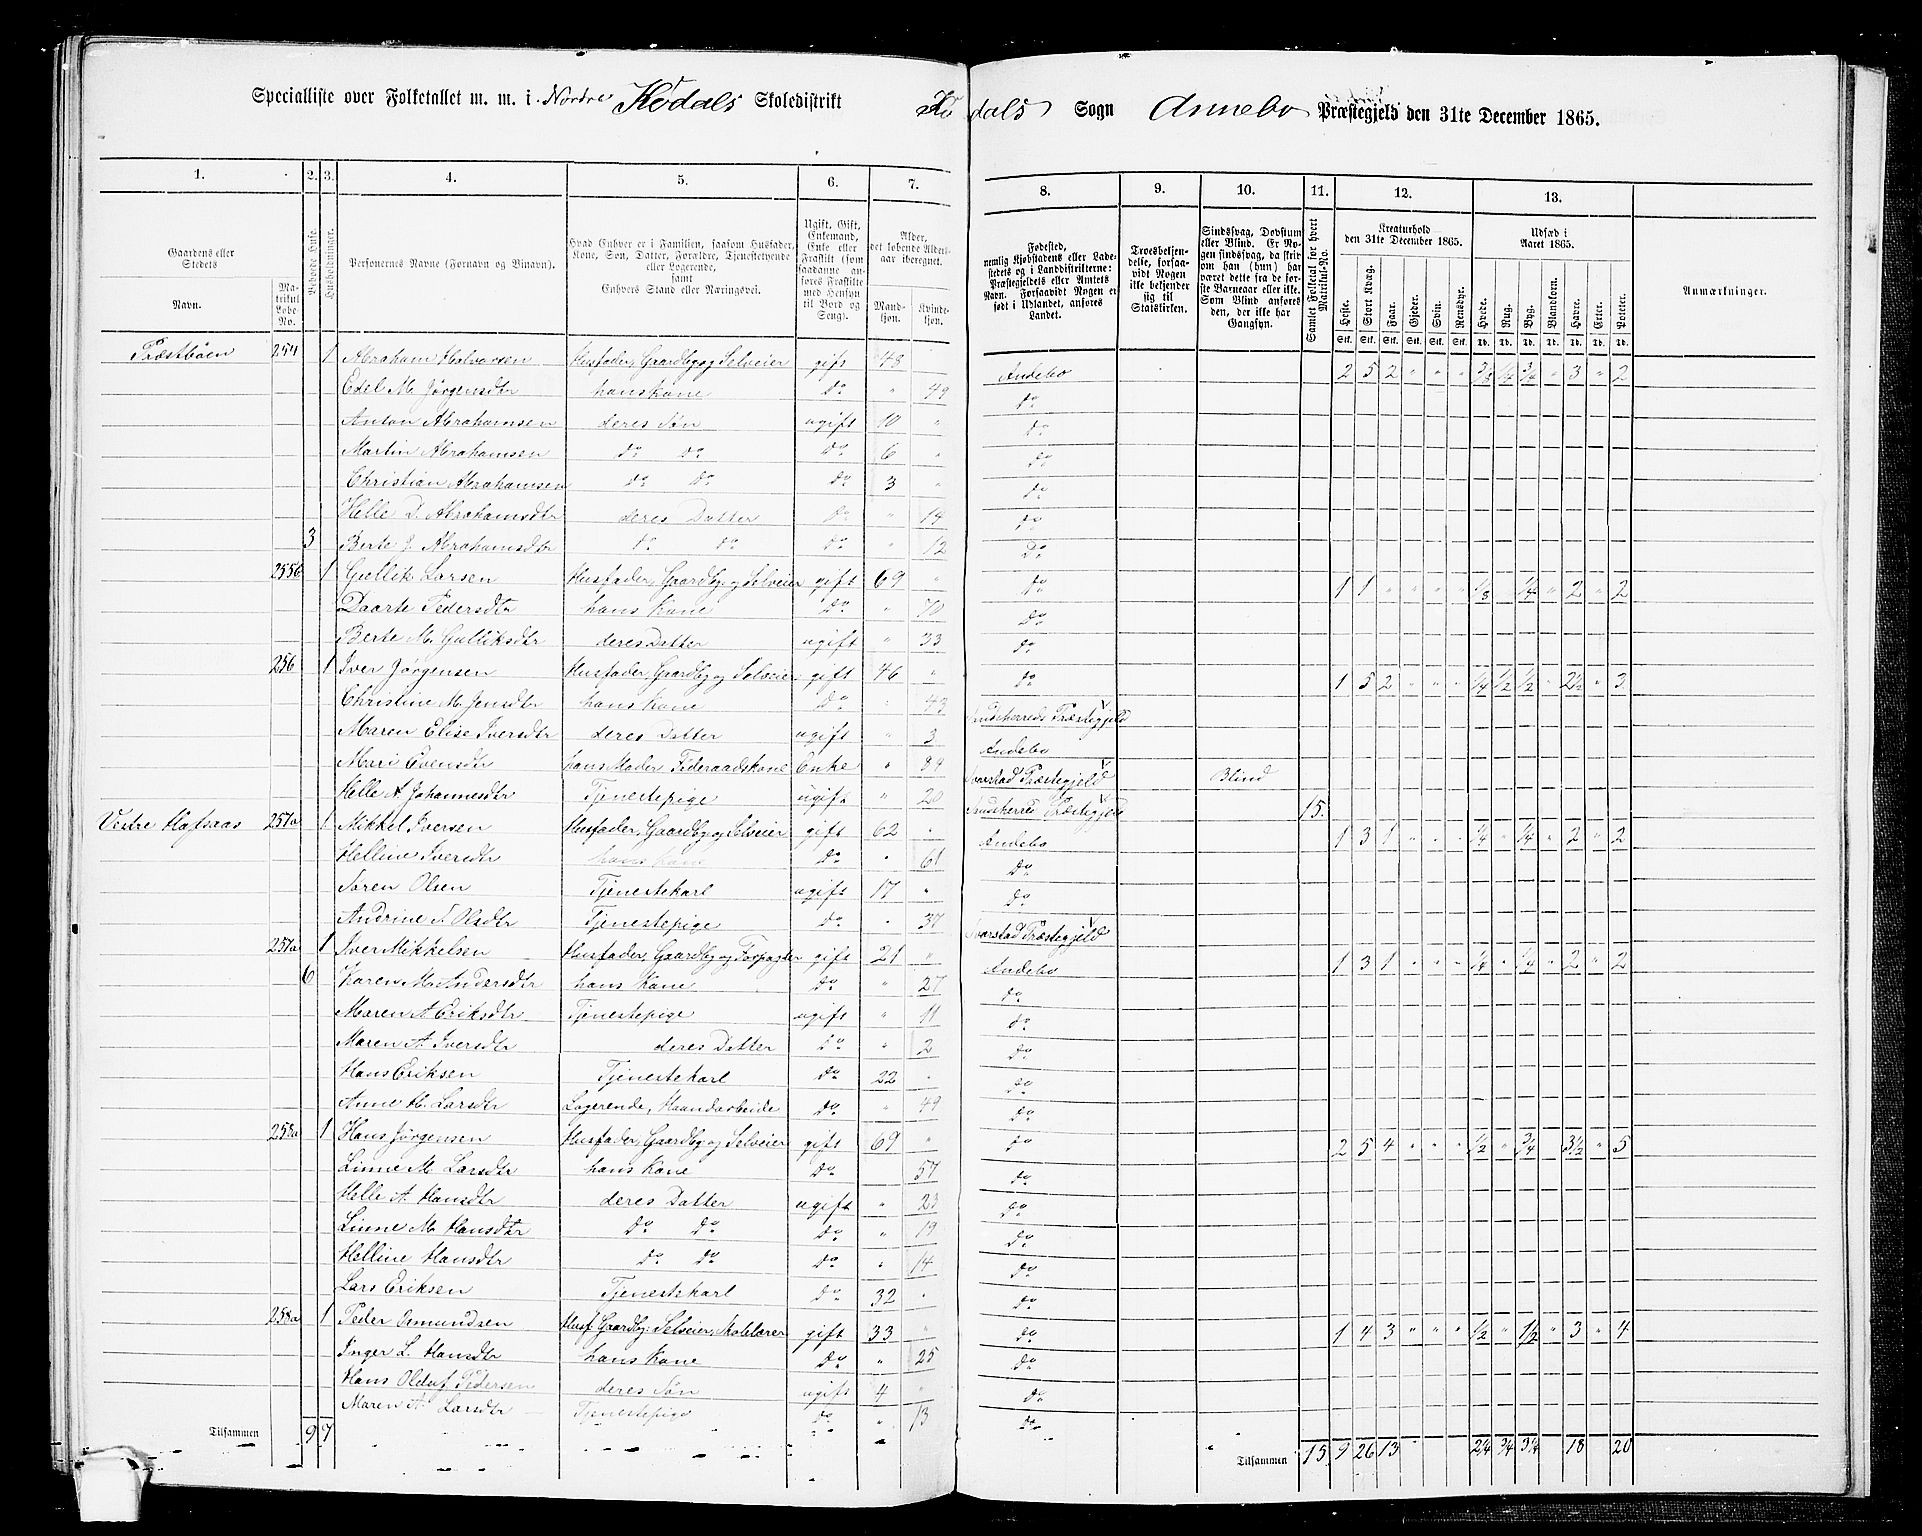 Specialliste over Folketallet m. m. i Nordre Kødals Skoledistrikt Kødals Sogn Annebo Præstegjeld den 31te December 1865.
1. 2. 3. 4. 5. 6. 7. 8. 9. 10. 11. 12. 13.
Gaardens eller Stedets Navn. Matrikul Løbe-No. Beboede Huse. Husholdninger. Personernes Navne (Fornavn og Tilnavn). Hvad Enhver er i Familien, saasom Husfader, Kone, Søn, Datter, Forældre, Tjenestetyende eller Logerende, samt Enhvers Stand eller Næringsvei. Ugift, Gift, Enkemand, Enke eller Fraskilt (som saadanne anføres Fraskilte med Hensyn til Bord og Seng). Alder, det løbende Aldersaar iberegnet. Mandkjøn. Kvindekjøn. Fødested, nemlig Kjøbstadens eller Ladestedets og i Landdistrikterne: Præstegjeldets eller Annexets Navn. Forsaavidt Nogen er født i Udlandet, anføres Landet. Troesbekjendelse, forsaavidt Nogen ikke bekjender sig til Statskirken. Sindssvag, Døvstum eller Blind. Er Nogen sindssvag, da skrives om han (hun) har været dette fra de første Barneaar eller ikke. Som Blind anføres den, der ikke har Gangsyn. Samlet Folketal for hvert Matrikul-No. Kreaturhold den 31te December 1865. Udsæd i Aaret 1865. Anmærkninger.
Heste. Stort Kvæg. Faar. Gjeder. Svin. Rensdyr. Hvede. Rug. Byg. Blandkorn. Havre. Erter. Poteter.
Stk. Stk. Stk. Stk. Stk. Stk. Td. Td. Td. Td. Td. Td. Td.
Præstbøen 254 1 Abraham Halvorsen Husfader, Gaardb. og Selveier gift 48 Andebo 2 5 2 " " " 3/8 1/4 3/4 " 3 " 2
Edel M. Jørgensdtr hans Kone do " 49 do
Anton Abrahamsen deres Søn ugift 10 " do
Martin Abrahamsen do do do 6 " do
Christian Abrahamsen do do do 3 " do
Helle D. Abrahamsdtr deres Datter do " 14 do
3 Berte J. Abrahamsdtr do do do " 12 do
255b 1 Gullik Larsen Husfader, Gaardb. og Selveier gift 69 " do 1 1 " " " " 1/8 " 1/4 " 2 " 2
Daarte Pedersdtr hans Kone do " 70 do
Berte M. Gulliksdtr deres Datter ugift " 33 do
256 1 Iver Jørgensen Husfader, Gaardb. og Selveier gift 46 " do 1 5 2 " " " 1/4 1/2 1/2 " 2 1/2 " 3
Christine M. Jensdtr hans Kone do " 43 Sandeherreds Præstegjeld
Maren Elise Iversdtr deres Datter ugift " 3 Andebo
Mari Evensdtr hans Moder, Føderaadskone Enke " 84 Svarstad Præstegjeld Blind
Helle A. Johannesdtr Tjenestepige ugift " 20 Sandeherred Præstegjeld 15.
Vestre Hafsaas 257a 1 Mikkel Iversen Husfader, Gaardb og Selveier gift 62 " Andebo 1 3 1 " " " 1/4 " 1/4 " 2 " 2
Helline Iversdtr hans Kone do " 61 do
Søren Olsen Tjenestekarl ugift 17 " do
Andrine S. Olsdtr Tjenestepige do " 37 Svarstad Præstegjeld
257a 1 Iver Mikkelsen Husfader, Gaardb og Forpagter gift 21 " Andebo 1 3 1 " " " 1/4 " 1/4 " 2 " 2
6 Karen M. Andersdtr hans Kone do " 27 do
Maren A. Eriksdtr Tjenestepige ugift " 11 do
Maren A. Iversdtr deres Datter do " 2 do
Hans Eriksen Tjenestekarl do 22 " do
Anne H. Larsdtr Logerende, Haandarbeide do " 49 do
258a 1 Hans Jørgensen Husfader, Gaardb og Selveier gift 69 " do 2 5 4 " " " 1/2 " 3/4 " 3 1/2 " 5
Linne M. Larsdtr hans Kone do " 57 do
Helle A. Hansdtr deres Datter ugift " 23 do
Linne M. Hansdtr do do do " 19 do
Helline Hansdtr do do do " 14 do
Lars Eriksen Tjenestekarl do 32 " do
258a 1 Peder Esmundsen Husf. Gaardb: Selveier, Skolelærer gift 33 " do 1 4 3 " " " 1/2 " 1 1/2 " 3 " 4
Inger L. Hansdtr hans Kone do " 25 do
Hans Oldaf Pedersen deres Søn ugift 4 " do
Maren A. Larsdtr Tjenestepige do " 13 do
Tilsammen 9 7 Tilsammen 15 9 26 13 2 1/4 3/4 3 1/4 18 20